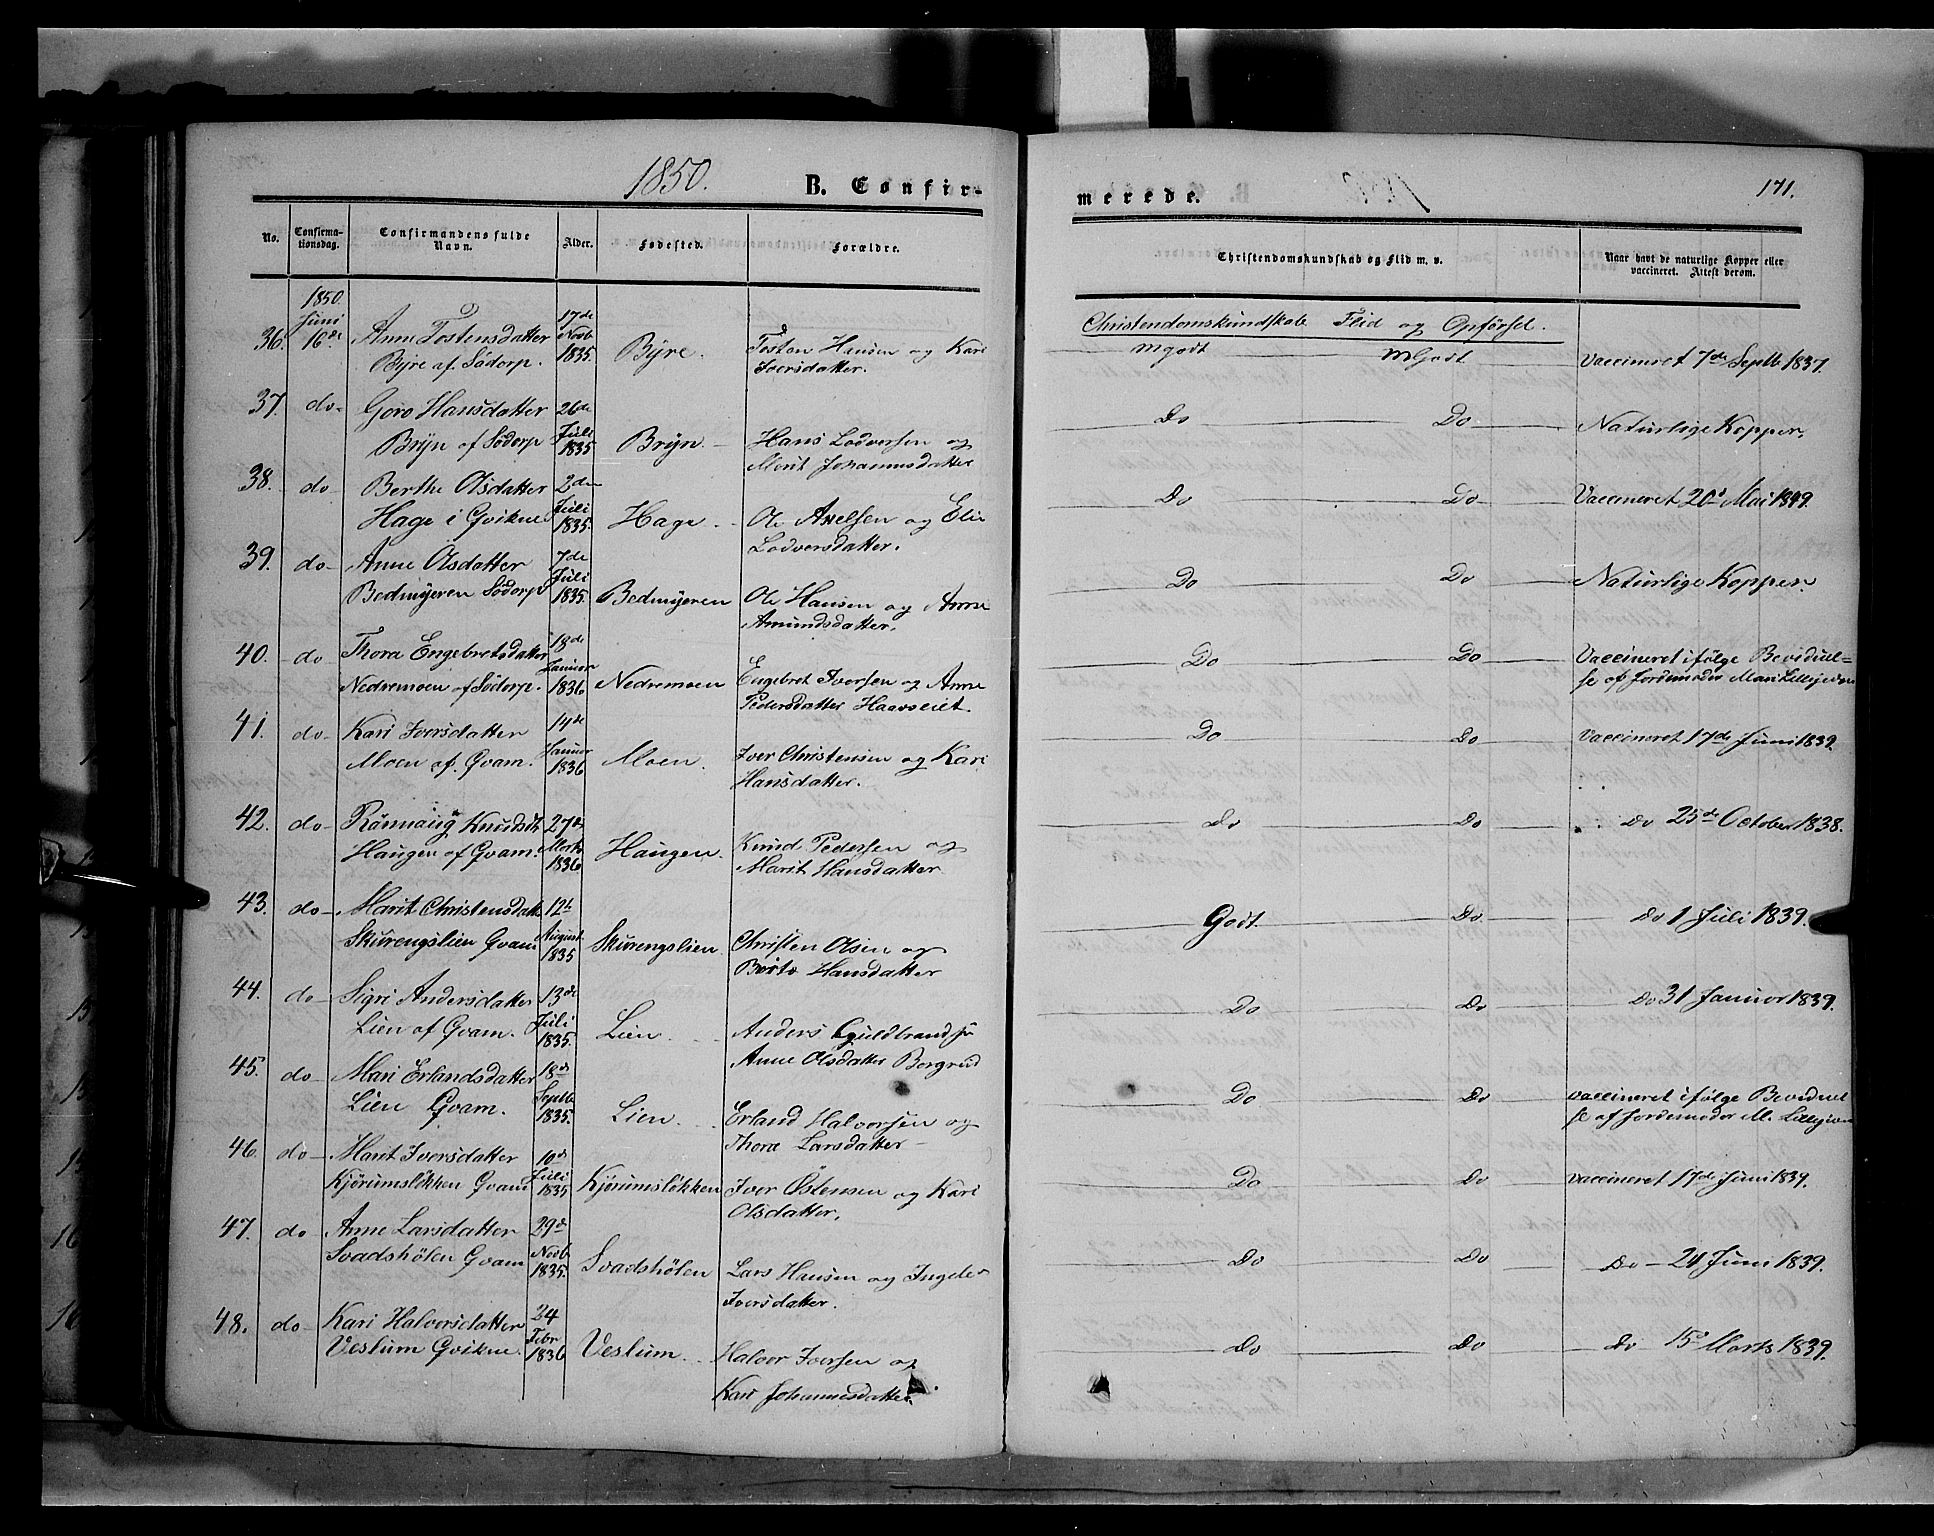 1850.
B. Confir-
merede.
171.
No.
Confirma-
tionsdag.
Confirmandens fulde
Navn.
Alder.
Fødested.
Forældre.
Christendomskundskab og Flid m. v.
Naar havt de naturlige Kopper eller
vaccineret. Attest derom.
1850.
Juni
Christendomskundskab Flid og Opførsel.
36. 16de Anne Tostensdatter 17de Novb 1835. Byre. Tosten Hansen og Kari mgodt mGodt Vaccineret 7de Septb 1837.
Byre af Södorp. Iversdatter.
37. do- Goro Hansdatter 26de Juli 1835 Bryn Hans Lodversen og Do Do Naturlige Kopper.
Bryn af Södorp Marit Johannesdatter
38. do- Berthe Olsdatter 2den Juli 1835. Hage. Ole Axelsen og Eli Do Do Vaccineret 20d Mai 1849.
Hage i Qvikne Lodversdatter.
39. do- Anne Olsdatter 7de Juli 1835. Bedmyeren Ole Hansen og Anne Do Do Naturlige Kopper.
Bedmyeren Södorp Amundsdatter.
40. do- Thora Engebretsdatter 18de Januar 1836 Nedremoen Engebret Iversen og Anne Do Do Vaccineret ifølge
Nedremoen af Södorp. Pedersdatter af Jordemoder
41. do- Kari Iversdatter 14de Januar 1836 Moen. Iver Christensen og Kari Do Do Vaccineret 17de Juni 1839.
Moen af Qvam. Hansdatter.
42. do- Rönnaug Knudsdt 27de Marts 1836 Haugen. Knud Pedersen og Do Do Do 25de October 1838.
Haugen af Qvam. Marit Hansdatter
43. do- Marit Christensdatt 12te August 1835 Skurengslien Christen Olsen og Godt. Do Do 1 Juli 1839.
Skurengslien Qvam Hansdatter
44. do- Sigri Andersdatter 13de Juli 1835. Lien. Anders Guldbrands Do Do Do 31 Januar 1839.
Lien af Qvam. Anne Olsdatter Borgrud
45. do- Mari Erlandsdatter 18de Septb 1835. Lien. Erland Halvorsen og Do Do vaccineret ifølge
Lien Qvam. Thora Larsdatter af Jordemoder M.
46. do- Marit Iversdatter 10de Juli 1835 Kjörumslökken Iver Östensen og Kari Do Do vaccineret 17de Juni 1839.
Kjörumslökken Qvam Olsdatter.
47. do- Anne Larsdatter 29de Novb 1835. Svadshölen Lars Hansen og Do Do Do 24 Juni 1839.
Svadshölen Qvam Iversdatter.
48. do- Kari Halvorsdatter 24 Febr 1836 Veslum Halvor Iversen og Do Do Do 15d Marts 1839.
Veslum Qvikne. Kari Johannesdatter